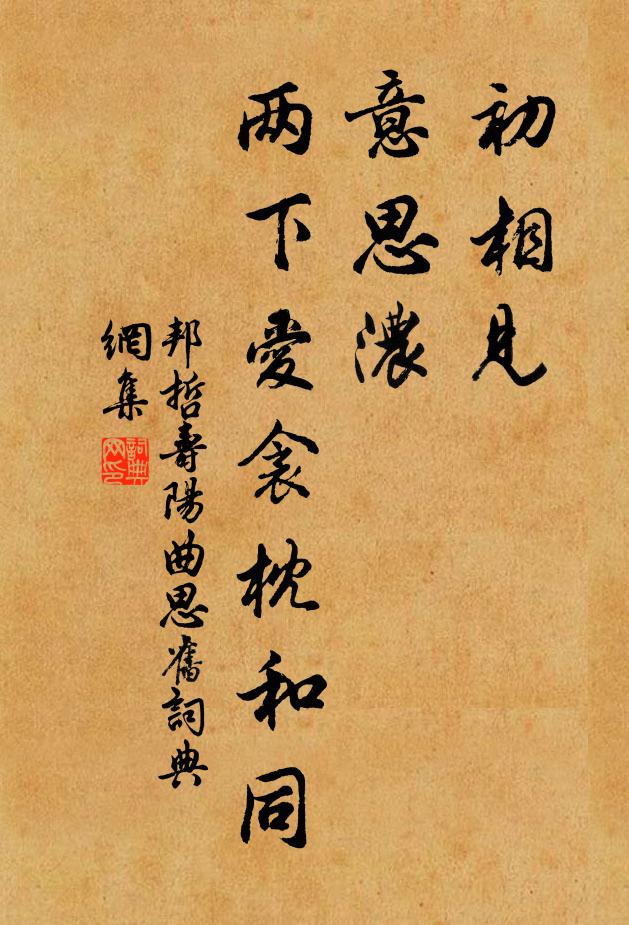 初相見
意思濃
两下愛衾枕和同
邦哲壽陽曲思舊詞典
網集
詞典
网印